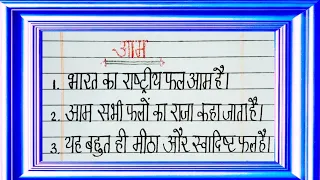 आम
1. भारत का राष्ट्रीय फल आम है।
2. आम सभी फलों का राजा कहा जाता है।
3. यह बहुत ही मीठा और स्वादिष्ट फल है।